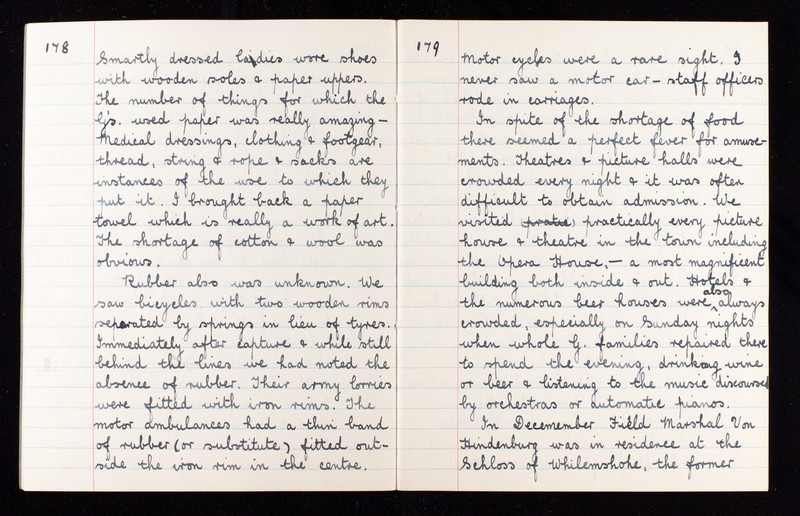 178
Smartly dressed ladies wore shoes
with wooden soles & paper uppers.
The number of things for which the
G's. used paper was really amazing —
Medical dressings, clothing & footgear,
thread, string & rope & sacks are
instances of the use to which they
put it. I brought back a paper
towel which is really a work of art.
The shortage of cotton & wool was
obvious.
Rubber also was unknown. We
saw bicycles with two wooden rims
seperated by springs in lieu of tyres.
Immediately after capture & while still
behind the lines we had noted the
absence of rubber. Their army lorries
were fitted with iron rims. The
motor ambulances had a thin band
of rubber (or substitute) fitted out-
side the iron rim in the centre.
179
Motor cycles were a rare sight. I
never saw a motor car — staff officers
rode in carriages.
In spite of the shortage of food
there seemed a perfect fever for amuse-
ments. Theatres & picture halls were
crowded every night & it was often
difficult to obtain admission. We
visited practically every picture
house & theatre in the town including
the Opera House, — a most magnificent
building both inside & out. Hotels &
the numerous beer houses were also always
crowded, especially on Sunday nights
when whole G. families repaired there
to spend the evening, drinking wine
or beer & listening to the music discoursed
by orchestras or automatic pianos.
In Decemember Field Marshal Von
Hindenburg was in residence at the
Schloss of Whilemshohe, the former